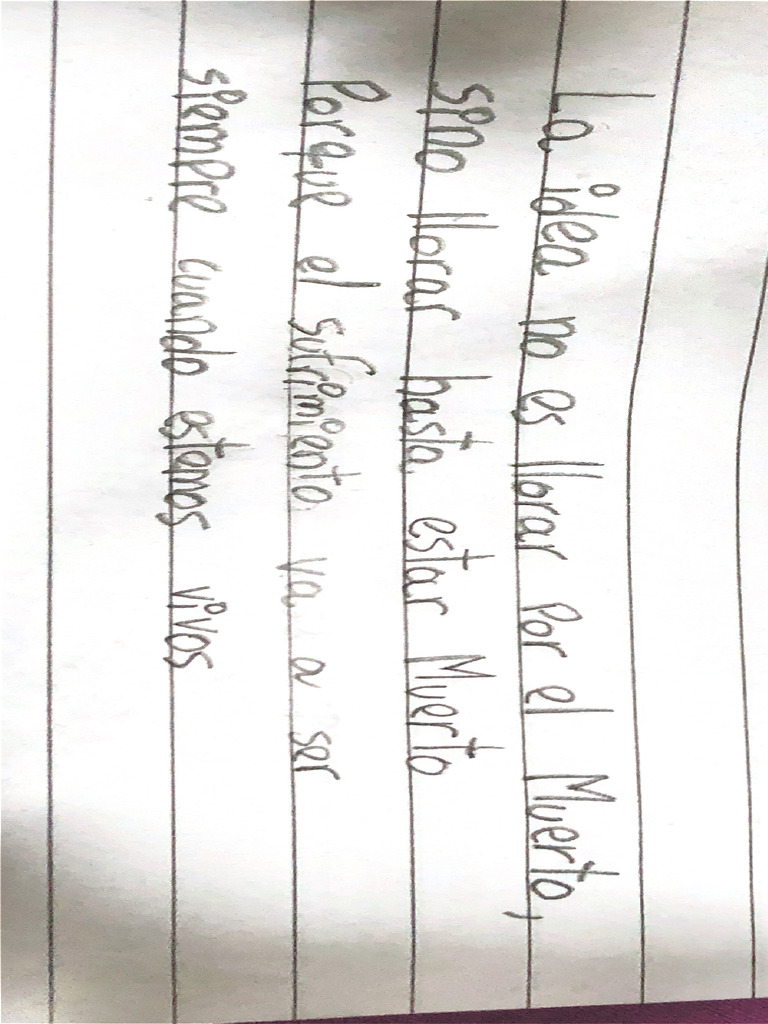 La idea no es llorar por el Muerto,
sino llorar hasta estar Muerto
Porque el sufrimiento va a ser
siempre cuando estemos vivos